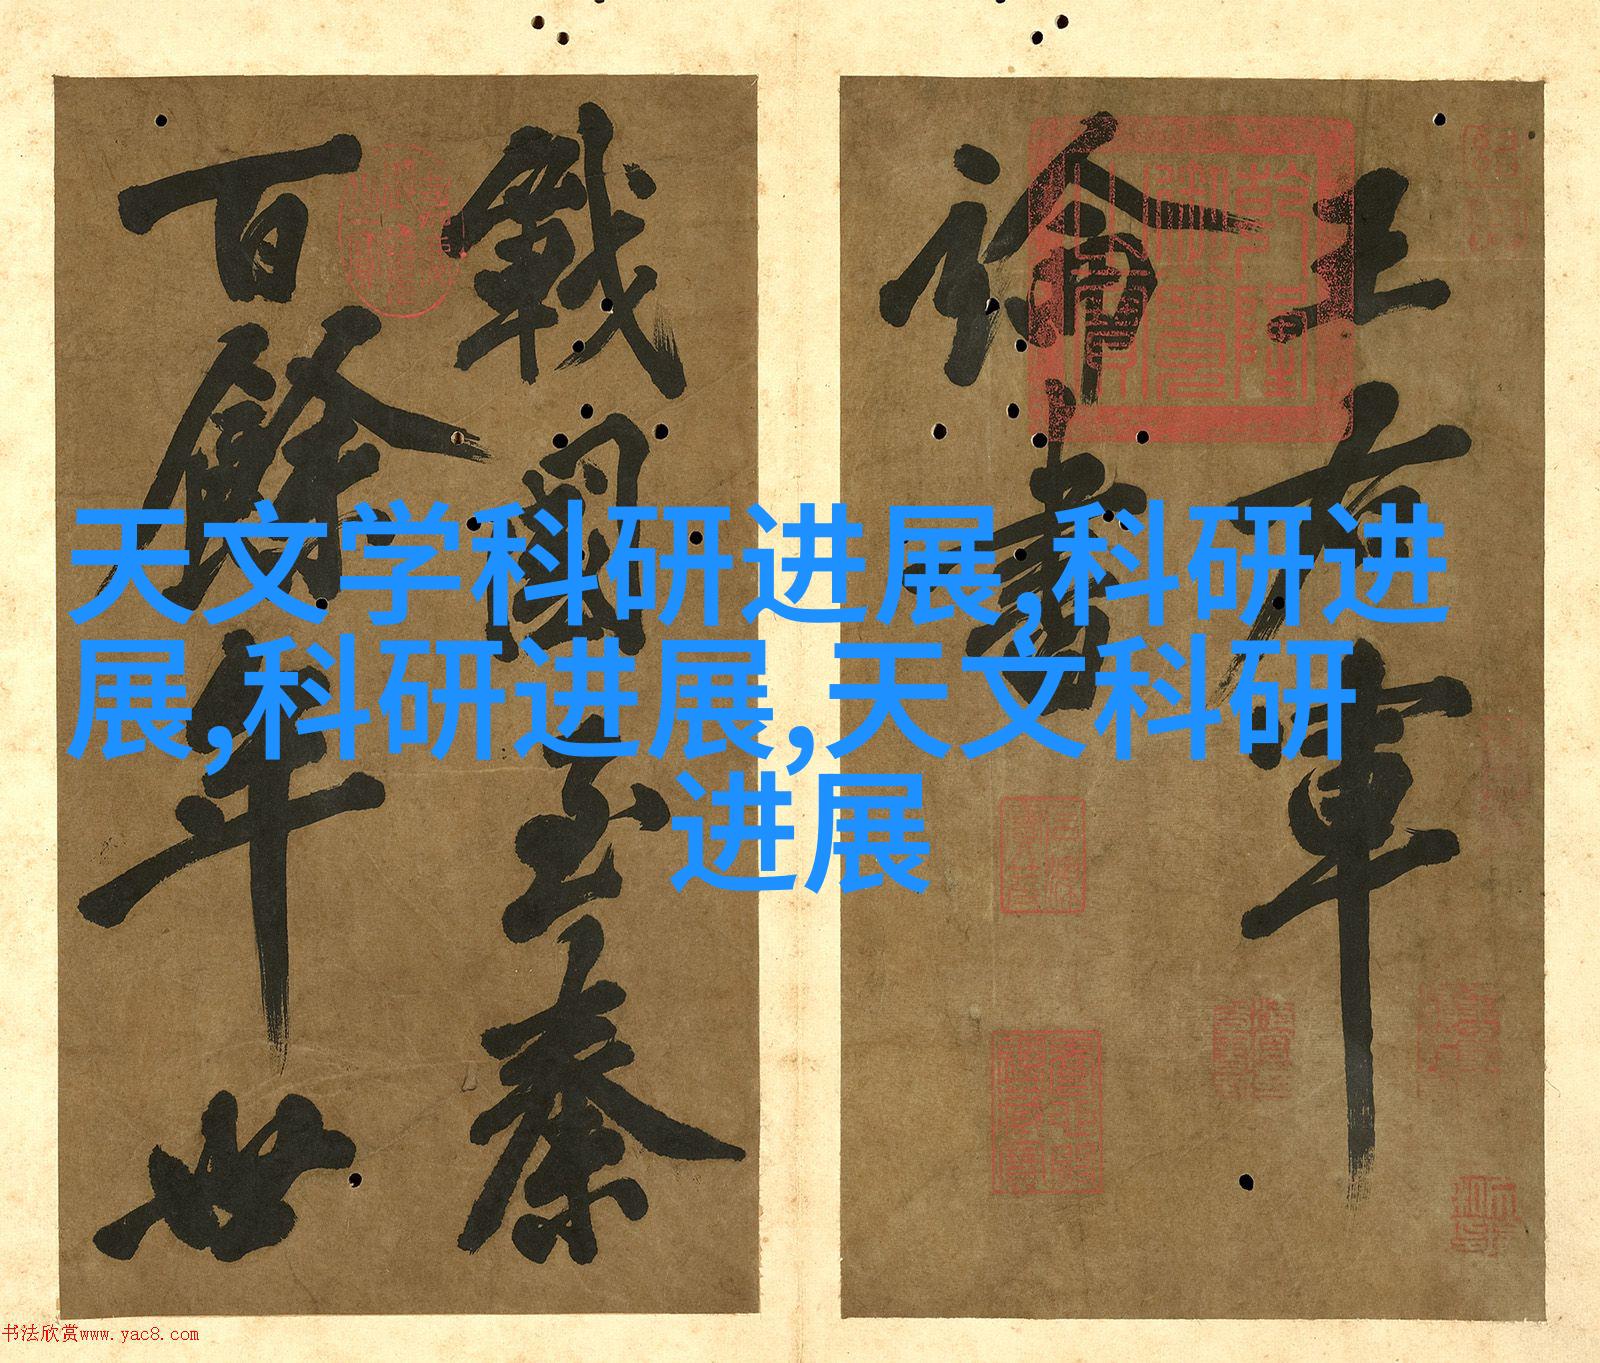 王右軍
論書
戰國至秦
百餘年世
乾隆御覽之寶
天文学科研进展,科研进
展,科研进展,天文科研
进展
书法欣赏www.yac8.com